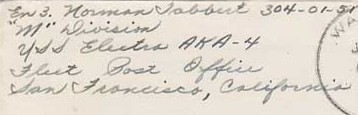 En 3. Norman Tabbert 304-01-51
"M" Division
USS Electra AKA-4
Fleet Post Office
San Francisco, California
WA